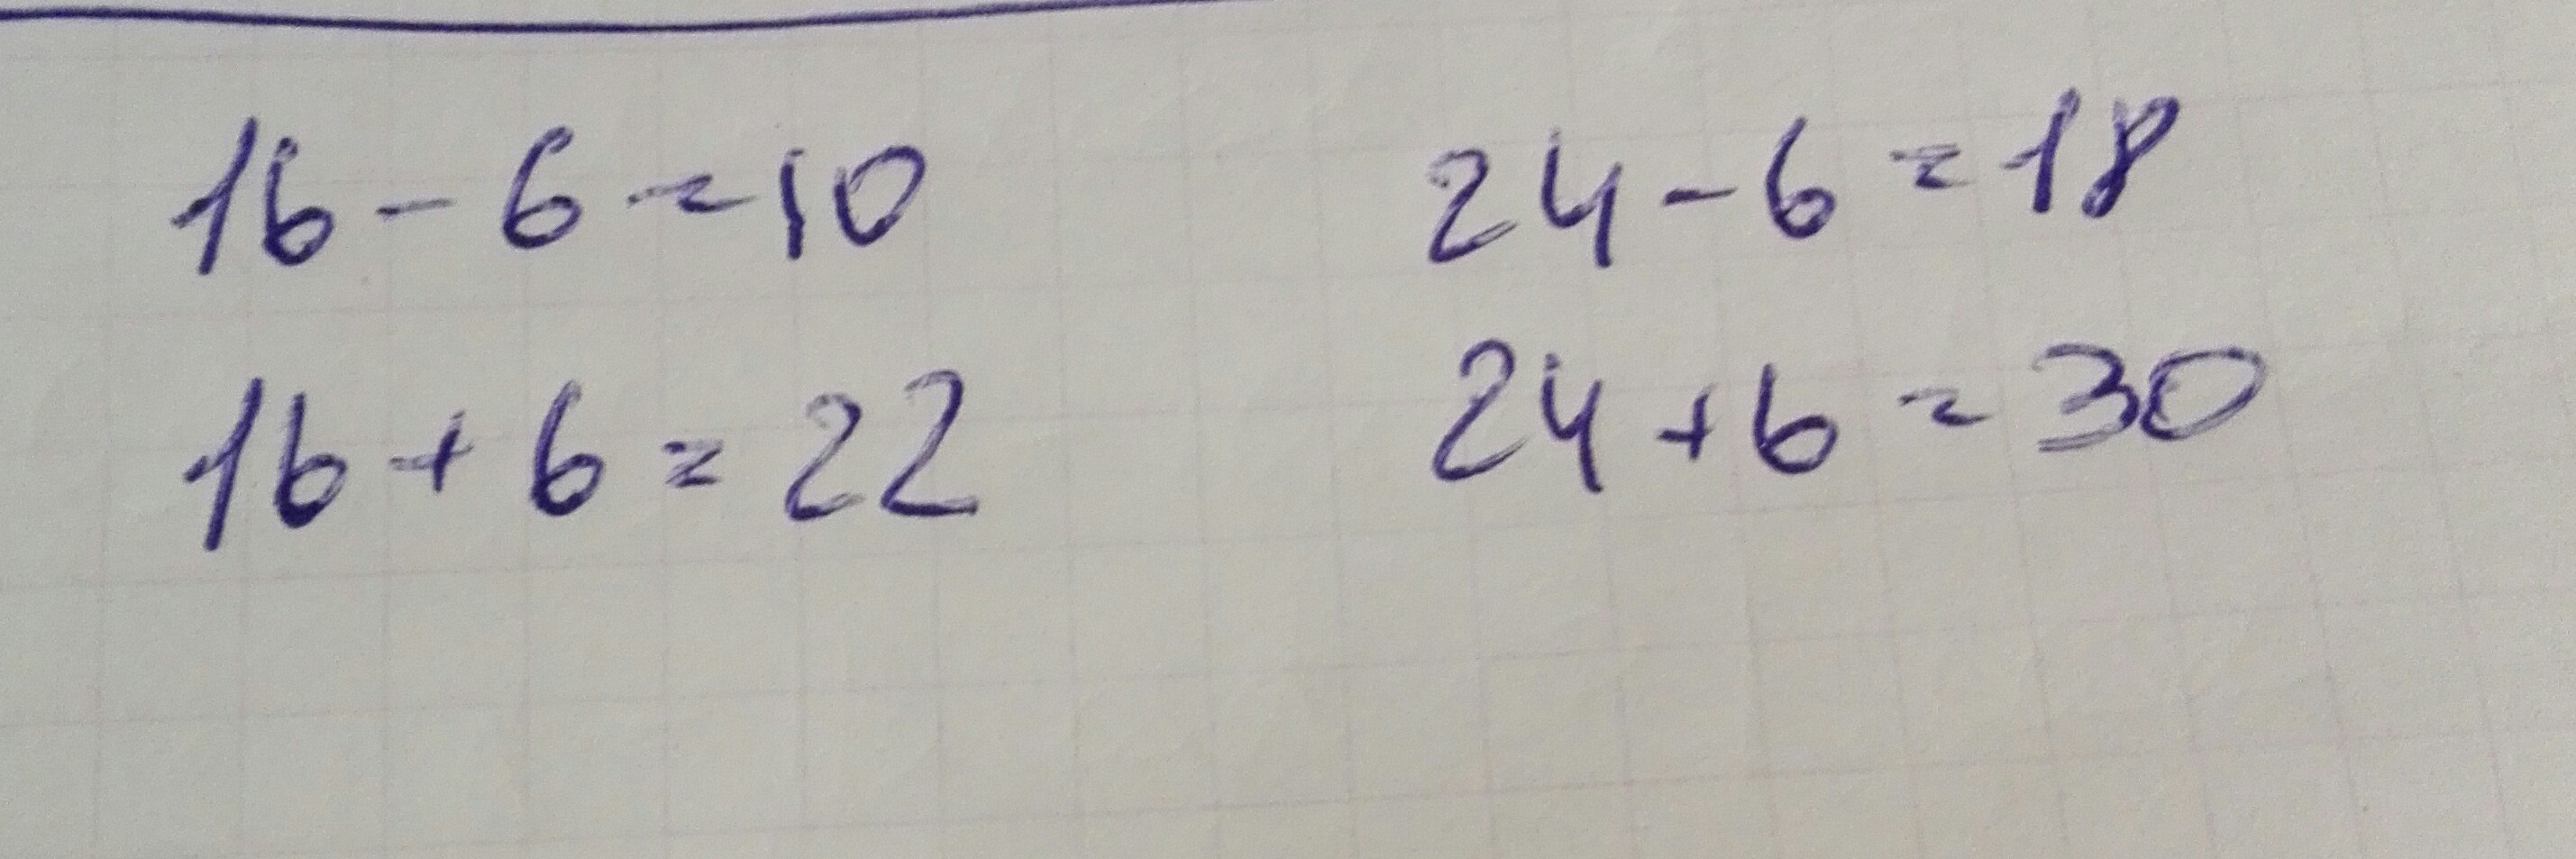 16 - 6 = 10
16 + 6 = 22
24 - 6 = 18
24 + 6 = 30